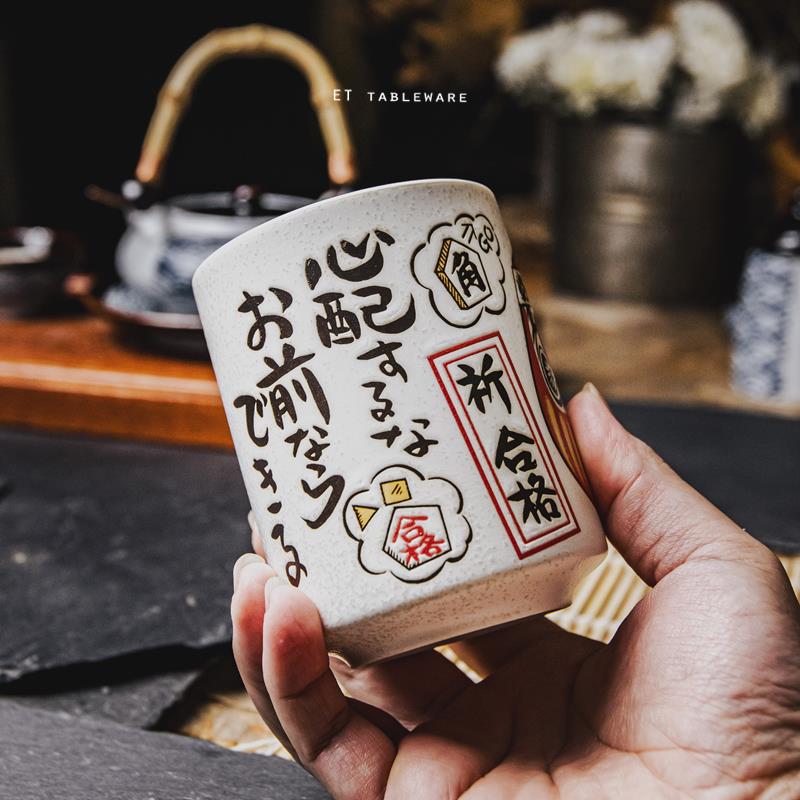 ET TABLEWARE
合GO
角
祈合格
心配するな
お前なら
できる
合格